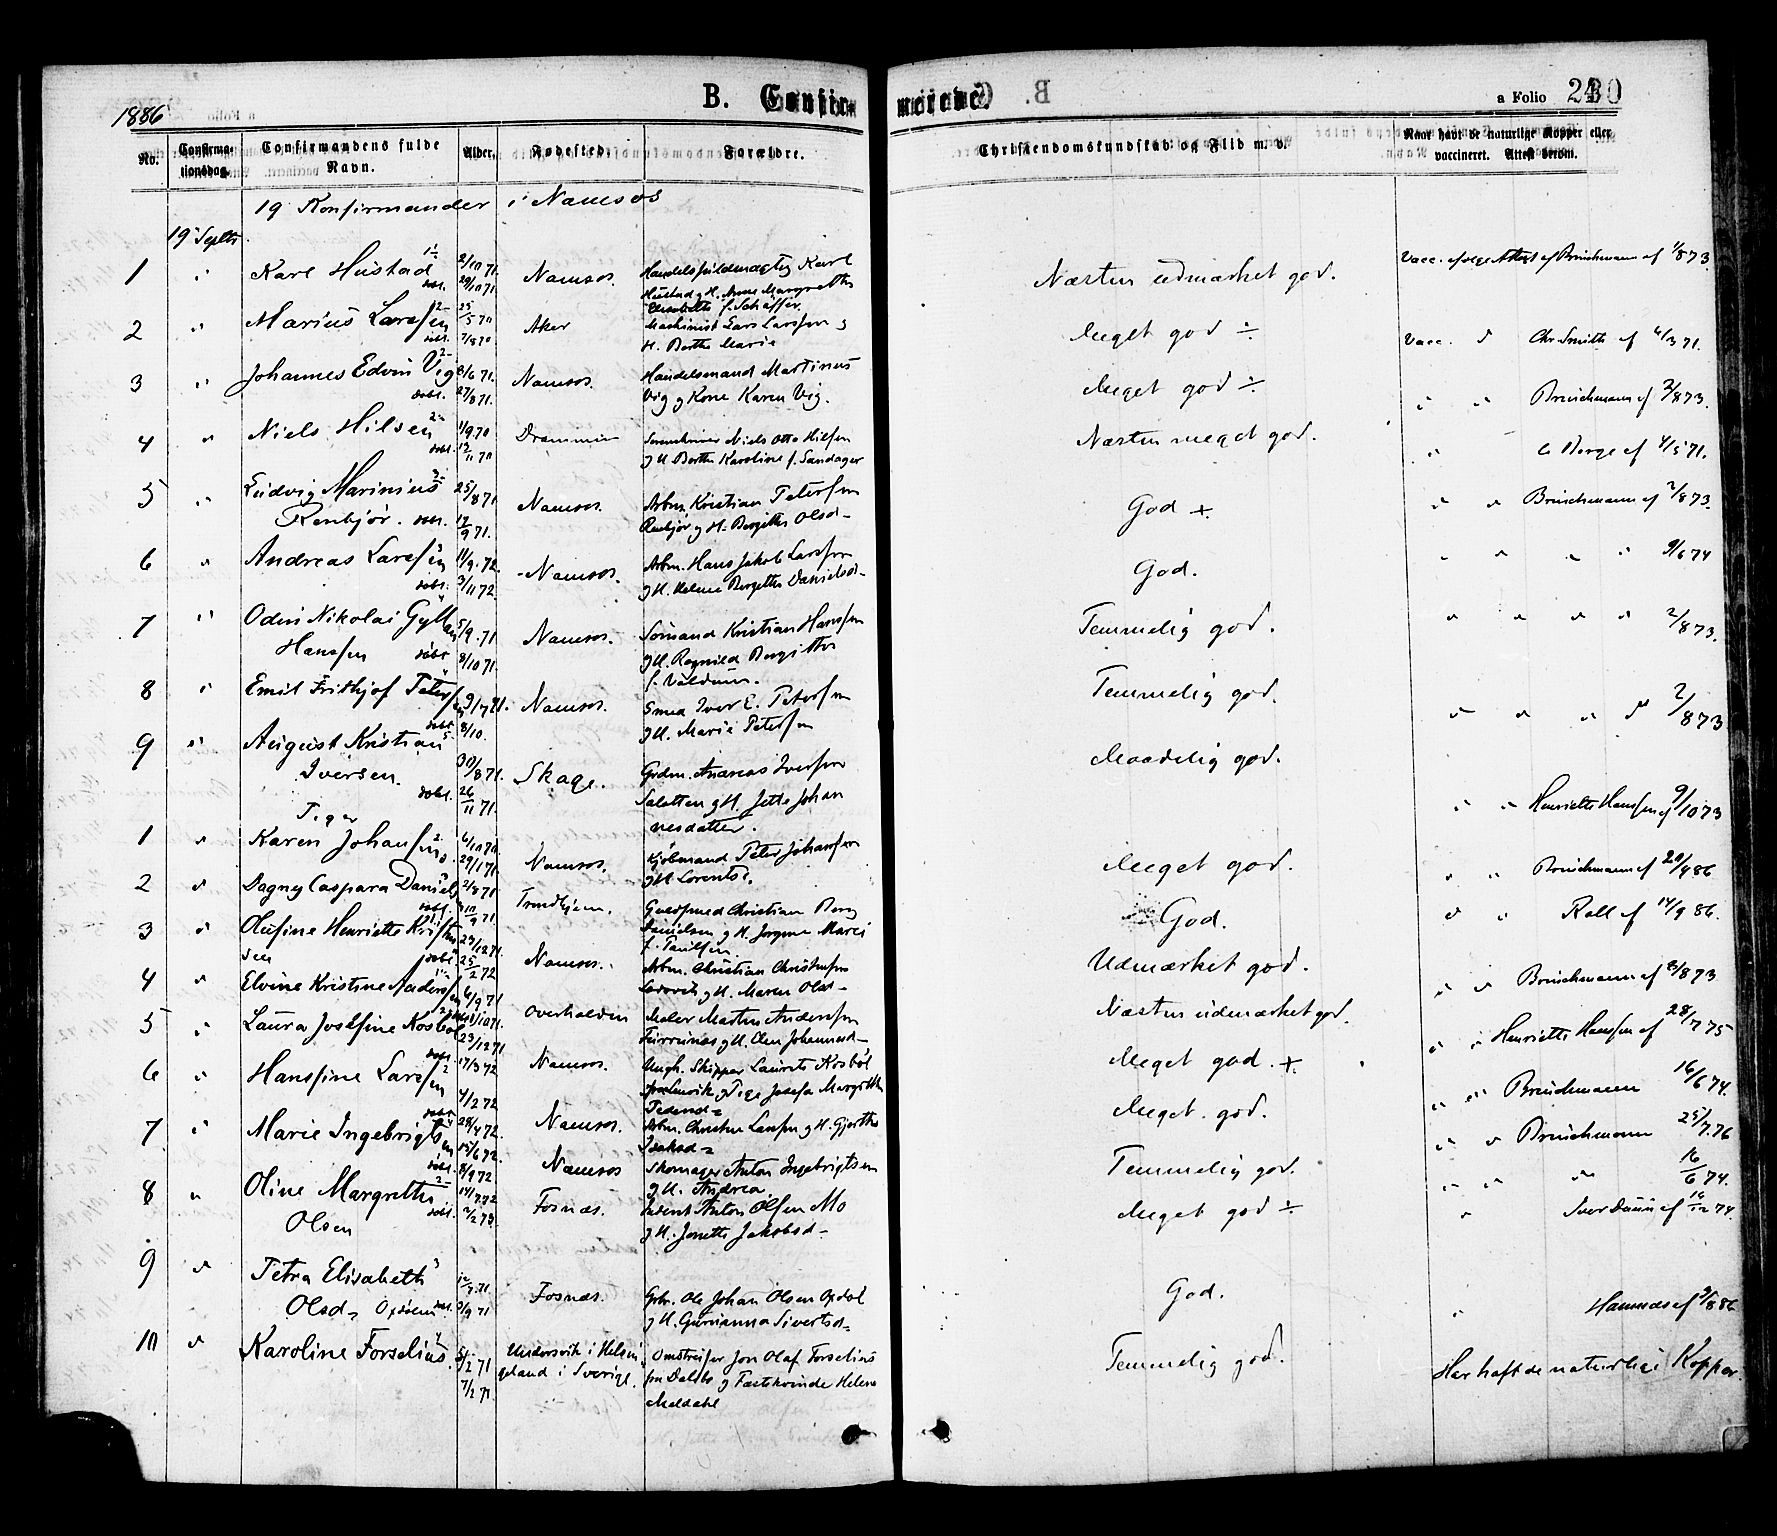 1886
B. Confirmerede.
a Folio 230
No.
Confirmationsdag.
Confirmandens fulde Navn.
Alder.
Fødested.
Forældre.
Christendomskundskab og Flid m. v.
Naar havt de naturlige Kopper eller vaccineret. Attest derom.
19 Konfirmander i Namsos
19 Septbr.
1 " Karl Hustad 2/10 71. Namsos. Handelsfuldmægtig Karl Næsten udmærket god. Vacc. ifølge Attest af Bruchmann af 1/8 73.
døbt. 29/10 71 Hustad g H. Anna Margrethe
Elisabeth f. Schäffer
2 " Marius Larssen 25/5 70 Aker Maskinist Lars Larssen g Meget god ÷ Vacc. " Chr. Smith af 6/3 71.
døbt. 7/8 70 H. Berthe Marie
3 " Johannes Edvin Vig 8/6 71. Namsos. Handelsmand Martinus Meget god ÷ " " Bruchmann af 2/8 73.
døbt. 27/8 71. Vig g Kone Karen Vig.
4 " Niels Hilsen 1/9 70 Drammen Niels Otto Hilsen Næsten meget god. " Berge af 4/5 71.
døbt. 13/11 70 g H. Berthe Karoline f. Sandager
5 " Ludvig Marinius 25/8 71 Namsos. Arbm. Kristian Petersen God + " " Bruchmann af 2/8 73.
Renbjør. døbt. 17/9 71. Renbjør g H. Bergitte Olsd-
6 " Andreas Larssen 11/9. 72. Namsos. Arbm. Hans Jakob Larssen God. " " " " 9/6 74
døbt. 3/11 72 g H. Helene Bergitte Danielsd-
7 " Odin Nikolai Gyll 5/9. 71 Namsos. Sømand Kristian Hanssen Temmelig god. " " " " 2/8 73.
Hanssen døbt 8/10 71. g H. Ragnild Bergitte
8 " Emil Fridthjof Petersen 9/7 71. Namsos. Smed Iver E. Petersen Temmelig god. " " " " 2/8 73
døbt 8/10. g H. Marie Petersen
9 " August Kristian 30/8 71. Skage. Grdm. Andreas Iversen Maadelig god. " " Henriette Hanssen af 9/10 73
Iversen. døbt. 26/11 71. g H. Jette Johan
nesdatter.
Piger
1 " Karen Johansen 6/10 70. Namsos. Kjøbmand Peter Johansen Meget god. " " Bruchmann af 20/9 86
29/1 71 g H. Lorentse.
2 " Dagny Caspara Daniels 2/8 71 Trondhjem. Guldsmed Christian Berg God. " " Roll af 14/9 86.
døbt. 10/9 71. Danielsen g H. Jørgine Marie
f. Paulsen.
3 " Olufine Henriette Kristen 23/12 71. Namsos. Arbm. Christian Christensen Udmærket god. " " Bruchmann af 2/8 73
sen døbt 25/2 72 g H. Maren Olsd-
4 " Elvine Kristine Anderssen 6/9 71 Overhalden Maler Martin Anderssen Næsten udmærket god. " " Henriette Hanssen af 28/7 75
g H. Elen Johannesd-
5 " Laura Josefine Kosbøl 23/12 71 Namsos. Ungk. Skipper Laurits Kosbøl Meget god. + " " Bruchmann 16/6 74.
døbt. 17/3 72 g Pige Josefa Margrethe
Pedersd-
6 " Hanssine Larssen 4/2 72 Namsos. Arbm. Christen Larssen g H. Gjertha Meget god. " " Bruchmann 25/7. 76
døbt 28/4 72. Isaksd-
7 " Marie Ingebrigtsen 15/6 72. Namsos Skomager Anton Ingebrigtsen Temmelig god. " " " 16/6 74.
døbt. 8/9 72 g H. Andrea.
8 " Oline Margrethe 14/7 72 Fosnæs. Anton Olsen Mo Meget god ÷ " Iver Duun af 16/12 74.
Olsen døbt. 2/2 73. g H. Jonette Jakobsd-
9 " Petra Elisabeth 12/7. 71. Fosnæs. Grbr. Ole Johan Olsen Opdøl God. " Hannæs af 9/8 86
Olsd- døbt. 3/9 71 g H. Gurianna Sivertsd-
10 " Karoline Forselius. 5/2 71 i Helsin Omstreifer Jon Olaf Forselius Temmelig god. Har haft de naturlige Kopper.
7/2 71. geland i Sverige. fra Dalsbo g Fæstekvinde Helene
Meldahl